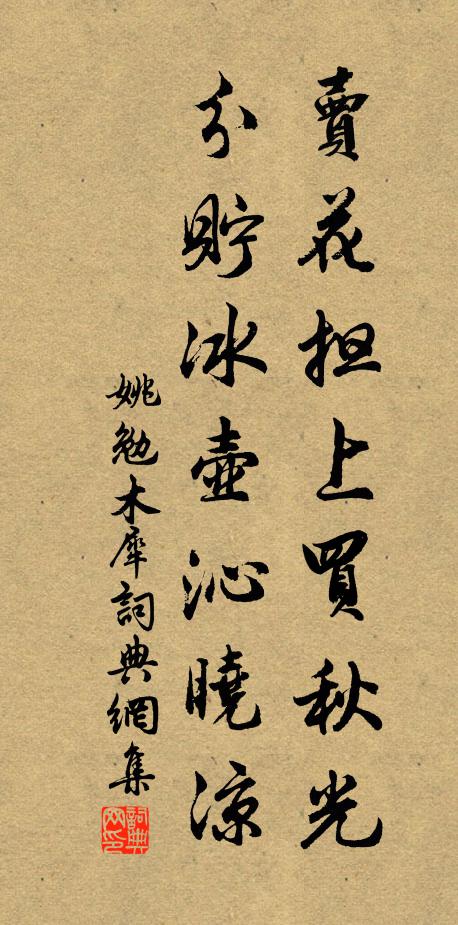 賣花担上買秋光
分貯冰壺沁曉涼
姚勉木犀詞典網集
詞典網印